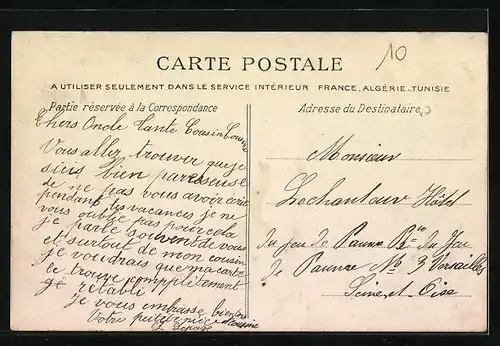 10
CARTE POSTALE
A UTILISER SEULEMENT DANS LE SERVICE INTÉRIEUR FRANCE, ALGÉRIE, TUNISIE
Partie réservée à la Correspondance
Adresse du Destinataire
Chers Oncle Tante Cousin Cousine
Vous allez trouver que je
suis bien paresseuse
de ne pas vous avoir écrit
pendant les vacances je ne
vous oublie pas pour cela
je parle souvent de vous
et surtout de mon cousin
je voudrais que ma carte
le trouve complètement
rétabli
Je vous embrasse bien
Votre petite nièce cousine
Lepage
Monsieur
Lechanteur Hôtel
du jeu de Paume R du Jeu
de Paume No 3 Versailles
Seine-et-Oise